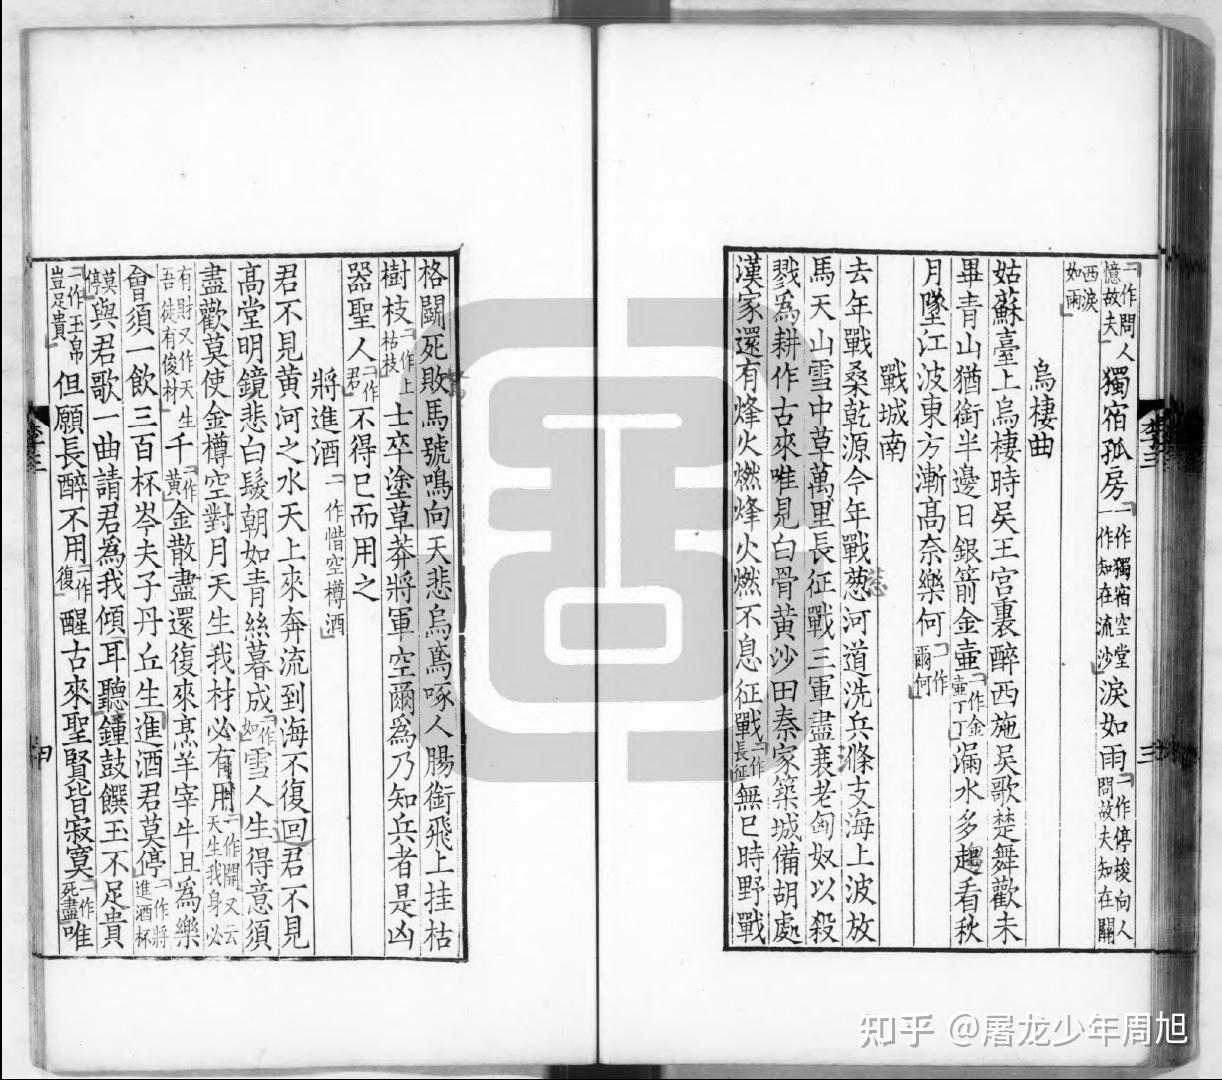 一作問人憶故夫獨宿孤房一作獨宿空堂一作知在流沙淚如雨一作停梭向人問故夫知在關
西淚如雨
烏棲曲
姑蘇臺上烏棲時吳王宮裏醉西施吳歌楚舞歡未
畢青山猶銜半邊日銀箭金壺一作金壺丁丁漏水多起看秋
月墜江波東方漸高奈樂何一作爾何
戰城南
去年戰桑乾源今年戰葱河道洗兵條支海上波放
馬天山雪中草萬里長征戰三軍盡衰老匈奴以殺
戮爲耕作古來唯見白骨黃沙田秦家築城備胡處
漢家還有烽火燃烽火燃不息征戰一作長征無已時野戰
格鬬死敗馬號鳴向天悲烏鳶啄人腸銜飛上挂枯
樹枝一作上枯枝士卒塗草莽將軍空爾爲乃知兵者是凶
器聖人一作君不得已而用之
將進酒一作惜空樽酒
君不見黃河之水天上來奔流到海不復回君不見
高堂明鏡悲白髮朝如青絲暮成一作如雪人生得意須
盡歡莫使金樽空對月天生我材必有用一作開又云天生我身必
有財又作天生吾徒有俊材千一作黃金散盡還復來烹羊宰牛且爲樂
會須一飲三百杯岑夫子丹丘生進酒君莫停一作將進酒杯
莫停與君歌一曲請君爲我傾耳聽鐘鼓饌玉不足貴
一作玉帛豈足貴但願長醉不用一作復醒古來聖賢皆寂寞一作死盡唯
李三
三
知乎 @屠龙少年周旭